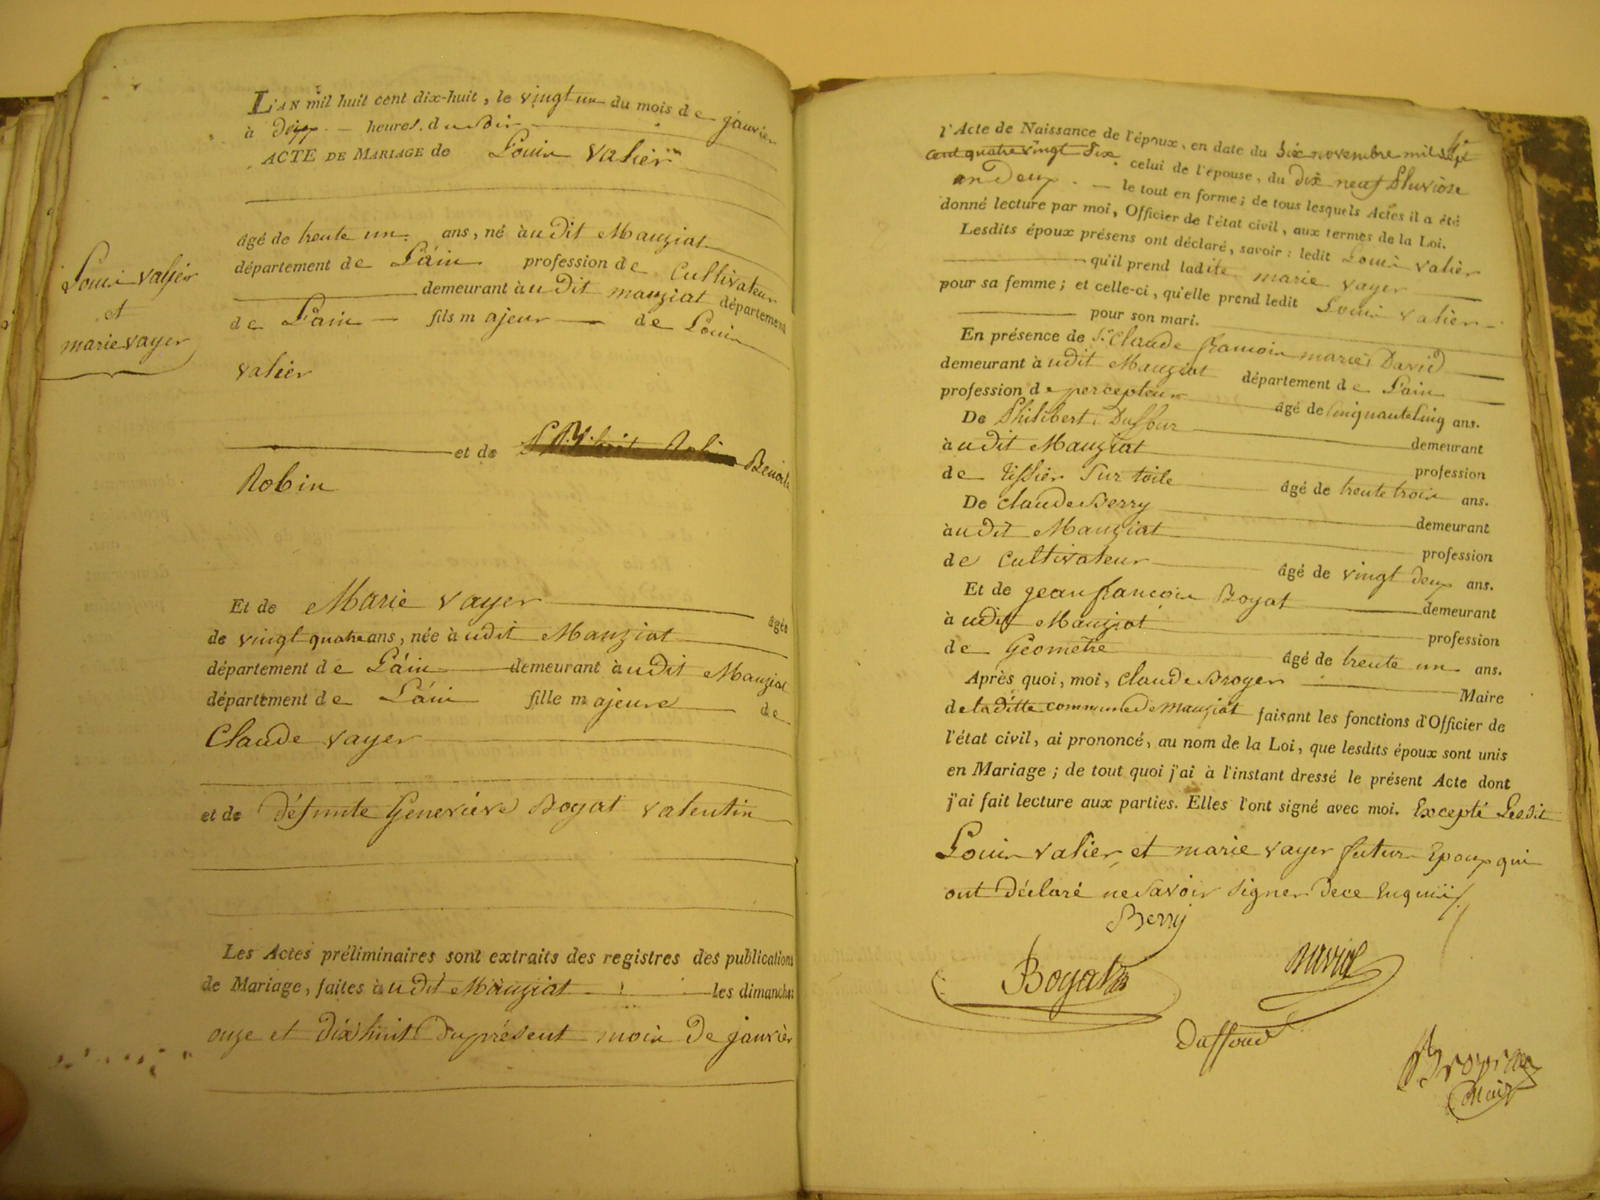 L'AN mil huit cent dix-huit, le vingt un du mois de janvier
à Deux heures du soir
ACTE DE MARIAGE de Louis Valier
âgé de trente un ans, né àudit Manziat
département de L'ain profession de Cultivateur
demeurant àudit manziat département
de L'ain fils majeur de Louis
valier
et de Benoite
Robin
Louis valier
et
marie vayer
Et de Marie vayer âgée
de vingt quatre ans, née àudit Manziat
département de L'ain demeurant àudit Manziat
département de L'ain fille majeure de
Claude vayer
et de défunte Geneviève Boyat valentin
Les Actes préliminaires sont extraits des registres des publications
de Mariage, faites àudit Manziat les dimanches
onze et dix huit du présent mois de janvièr
l'Acte de Naissance de l'époux, en date du Six novembre mil sept
cent quatre vingt Six celui de l'épouse, du dix neuf Pluviose
an Deux le tout en forme; de tous lesquels Actes il a été
donné lecture par moi, Officier de l'état civil, aux termes de la Loi.
Lesdits époux présens ont déclaré, savoir: ledit Louis valier
qu'il prend ladite marie vayer
pour sa femme; et celle-ci, qu'elle prend ledit Louis valier
pour son mari.
En présence de Sr Claude françois marie David
demeurant àudit Manziat département de L'ain
profession de percepteur âgé de Cinquante Cinq ans.
De Philibert Duffour demeurant
àudit Manziat profession
de tissier sur toile âgé de trente trois ans.
De Claude Berry demeurant
àudit Manziat profession
de cultivateur âgé de vingt deux ans.
Et de jean françois Boyat demeurant
àudit Manziat profession
de Géomètre âgé de trente un ans.
Après quoi, moi, Claude Broyer Maire
de la ditte commune de manziat faisant les fonctions d'Officier de
l'état civil, ai prononcé, au nom de la Loi, que lesdits époux sont unis
en Mariage; de tout quoi j'ai à l'instant dressé le présent Acte dont
j'ai fait lecture aux parties. Elles l'ont signé avec moi. Excepté Lesdit
Louis valier et marie vayer futurs Epoux qui
ont déclaré ne savoir signer de ce Enquis
Berry
Boyat David
Duffour
Broyer
Maire